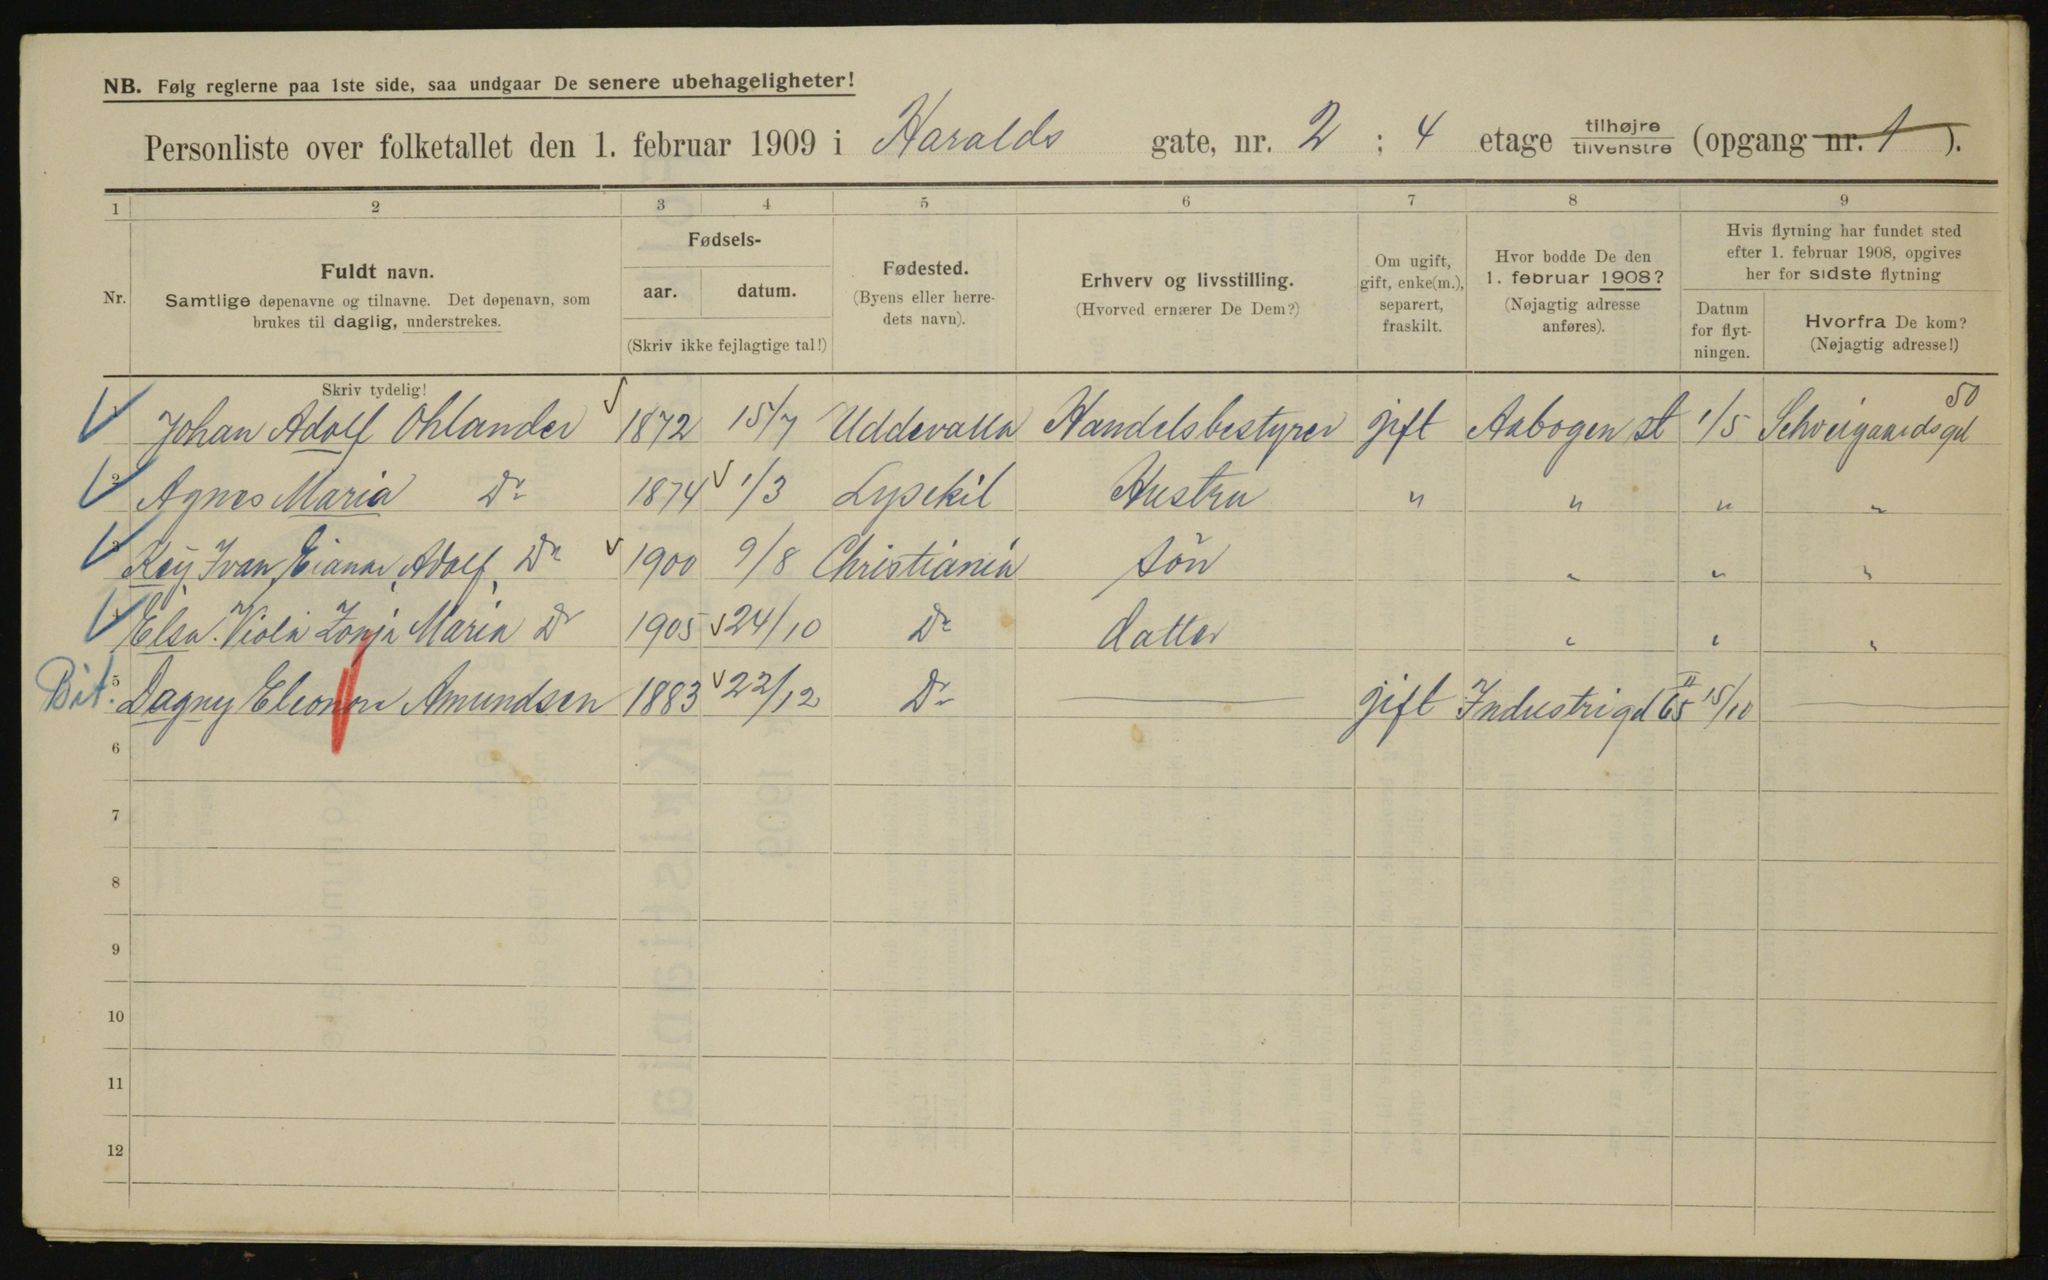 NB. Følg reglerne paa 1ste side, saa undgaar De senere ubehageligheter!
Personliste over folketallet den 1. februar 1909 i Haralds gate, nr. 2 ; 4 etage tilhøjre tilvenstre (opgang nr. 1 ).
1 2 3 4 5 6 7 8 9
Nr.
Fuldt navn.
Samtlige døpenavne og tilnavne. Det døpenavn, som
brukes til daglig, understrekes.
Fødsels-
aar. datum.
(Skriv ikke fejlagtige tal!)
Fødested.
(Byens eller herre-
dets navn).
Erhverv og livsstilling.
(Hvorved ernærer De Dem?)
Om ugift,
gift, enke(m.),
separert,
fraskilt.
Hvor bodde De den
1. februar 1908?
(Nøjagtig adresse
anføres).
Hvis flytning har fundet sted
efter 1. februar 1908, opgives
her for sidste flytning
Datum
for flyt-
ningen.
Hvorfra De kom?
(Nøjagtig adresse!)
Skriv tydelig!
1 Johan Adolf Ohlander 1872 15/7 Uddevalla Handelsbestyrer gift Aabogen st 1/5 Schveigaardsgd 50
2 Agnes Maria Do 1874 1/3 Lysekil Hustru " " " "
3 Key Ivan Einar Adolf Do 1900 9/8 Christiania sön " " "
4 Elsa Viola Zonja Maria Do 1905 24/10 Do datter " " "
Bit. 5 Dagny Eleonore Amundsen 1883 22/12 Do — gift Industrigd 65 II 15/10 —
6
7
8
9
10
11
12